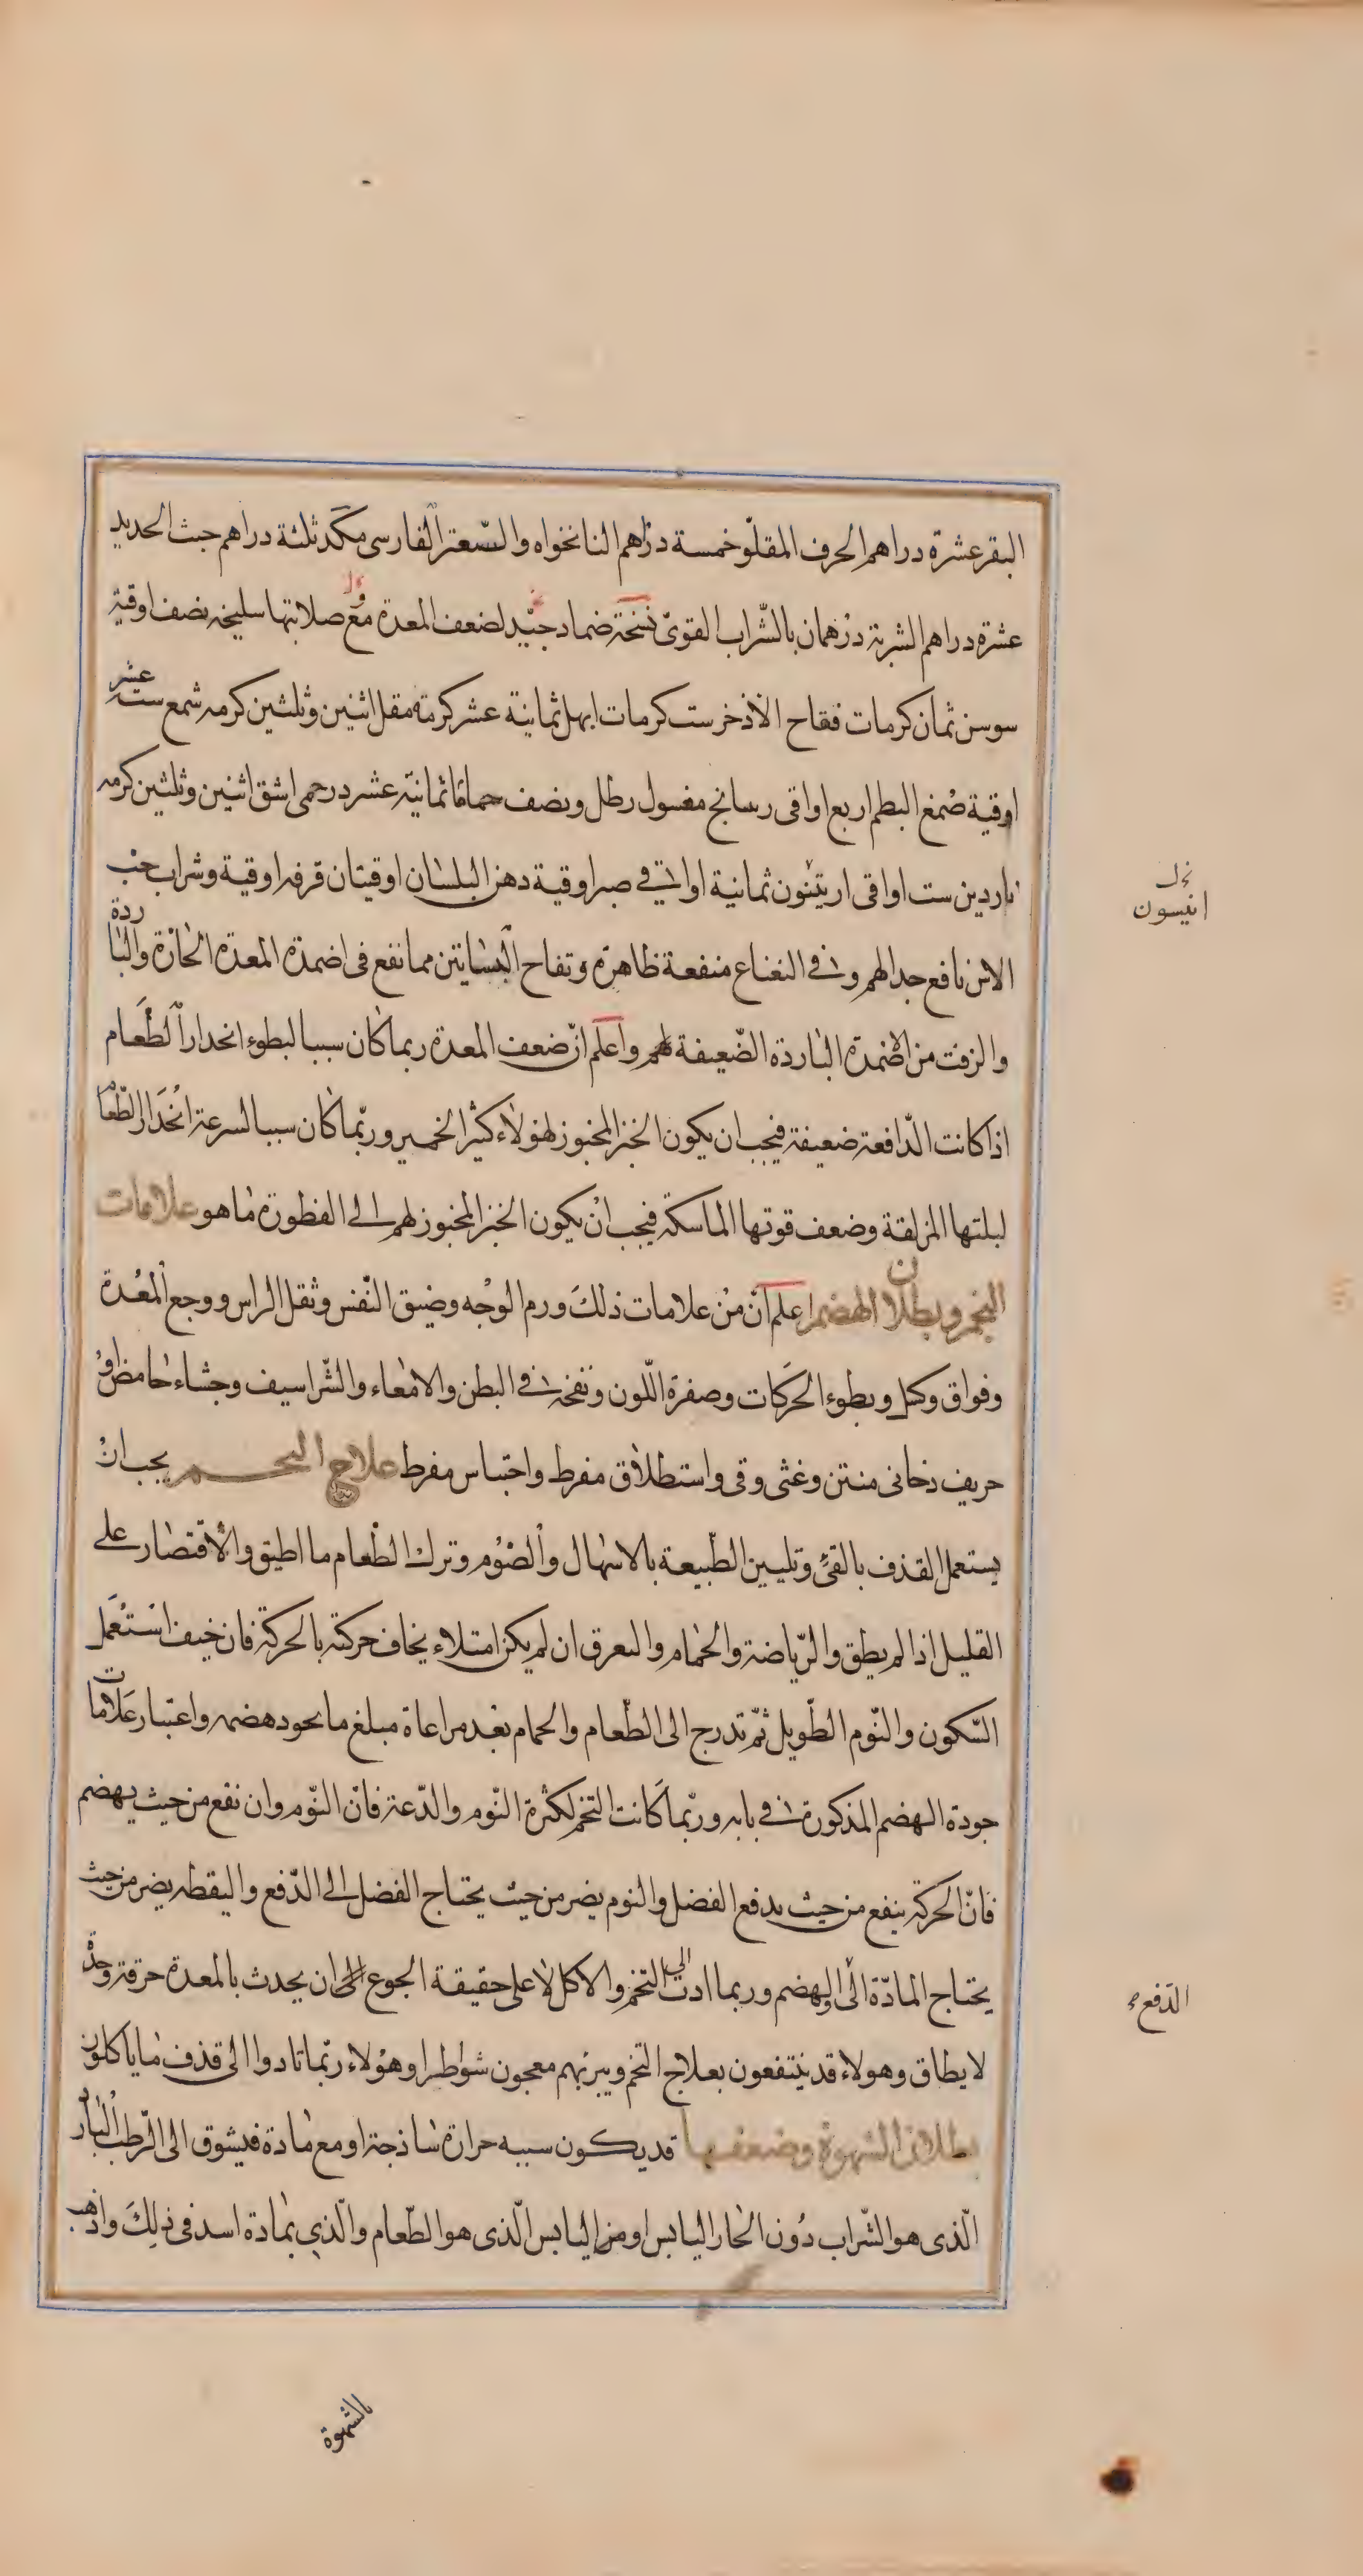 البقر عشرة دراهم الحرف المقلو خمسة دراهم النانخواه والسعتر الفارسى مكد ثلثة دراهم خبث الحديد
عشرة دراهم الشربة درهمان بالشراب القوىّ نسخة ضماد جيّد لضعف المعدة مع صلابتها سليخة نصف اوقية
سوسن ثمان كرمات فقاح الاذخر ست كرمات ابهل ثمانية عشر كرمة مقل اثنين وثلثين كرمه شمع ستة عشر
اوقية صمغ البطم اربع اواقى رسانج مغسول رطل ونصف حماما ثمانية عشر درخمى اشق اثنين وثلثين كرمه
ناردين ست اواقى اريثنون ثمانية اواقى صبر اوقية دهن البلسان اوقيتان قرفه اوقية وشراب حب
الاس نافع جدا لهم وفى النعناع منفعة ظاهرة وتفاح البساتين مما نفع فى اضمدة المعدة الحارة والباردة
والزفت من الاضمدة الباردة الضّعيفة لهم واعلم انّ ضعف المعدة ربما كان سببا لبطوء انحدار الطّعام
اذا كانت الدّافعة ضعيفة فيجب ان يكون الخبز المخبوز لهؤلاء كثير الخمير وربّما كان سببا لسرعة انحدار الطّعام
لبلتها المزلقة وضعف قوتها الماسكة فيجب ان يكون الخبز المخبوز لهم الى الفطورة ما هو علامات
التخم وبطلان الهضم اعلم انّ من علامات ذلك ورم الوجه وضيق النّفس وثقل الراس ووجع المعدة
وفواق وكسل وبطوء الحركات وصفرة اللّون ونفخة فى البطن والامعاء والشّراسيف وجشاء حامض او
حريف دخانى منتن وغثى وقى واستطلاق مفرط واحتباس مفرط علاج التخم يجب ان
يستعمل القذف بالقئ وتليين الطّبيعة بالاسهال والصّوم وترك الطّعام ما اطيق والاقتصار على
القليل اذا لم يطق والرّياضة والحمام والتعرق ان لم يكن امتلاء يخاف حركته بالحركة فان خيف استعمل
السّكون والنّوم الطّويل ثمّ تدرج الى الطّعام والحمام بعد مراعاة مبلغ ما يجود هضمه واعتبار علامات
جودة الهضم المذكورة فى بابه وربّما كانت التخم لكثرة النّوم والدّعة فانّ النّوم وان نفع من حيث يهضم
فانّ الحركة ينفع من حيث يدفع الفضل والنوم يضر من حيث يحتاج الفضل الى الدّفع واليقظه يضر من حيث
يحتاج المادّة الى الهضم وربما ادت الى التخم والاكل لا على حقيقة الجوع الى ان يحدث بالمعدة حرقة وحدة
لا يطاق وهولاء قد ينتفعون بعلاج التخم ويبريهم معجون شواطرا وهؤلاء ربّما تادوا الى قذف ما ياكلون
بطلان الشهوة وضعفها قد يكون سببه حرارة ساذجة او مع مادة فيشوق الى الرّطب البارد
الّذى هو الشّراب دون الحار اليابس او من اليابس الّذى هو الطّعام والّذي بمادة اسد فى ذلك واذهب
انيسون
الدّفع
بالشهوة